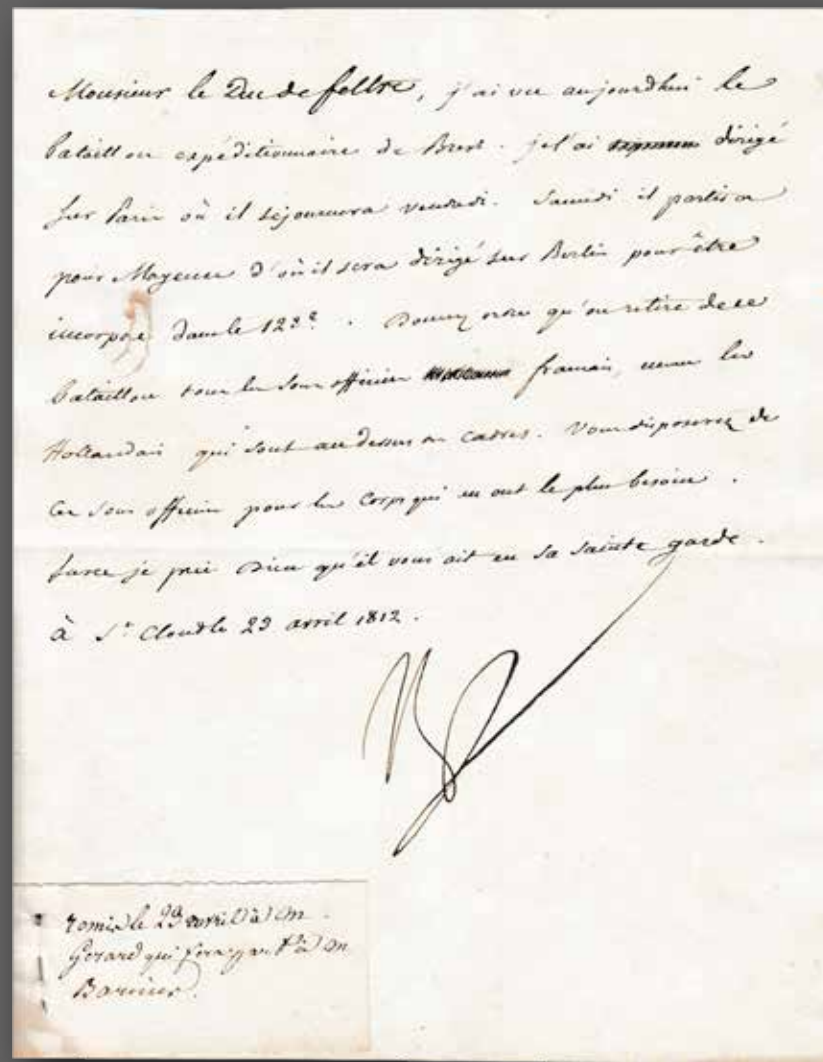 Monsieur le Duc de feltre, j'ai vu aujourdhui le
Bataillon expéditionnaire de Brest. je l'ai dirigé
sur Paris où il séjournera vendredi. Samedi il partira
pour Mayence d'où il sera dirigé sur Berlin pour être
incorporé dans le 123e. Donnez ordre qu'on retire de ce
Bataillon tous les sous officiers français, même les
Hollandais qui sont au dessus du cadres. Vous disposerez de
ces sous officiers pour les Corps qui en ont le plus besoin.
surce je prie Dieu qu'il vous ait en sa sainte garde.
à St Cloud le 23 avril 1812.
Np
remis le 29 avril à M.
Gerard qui fera part à M
Barnier.